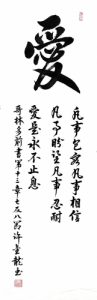 愛
凡事包容凡事相信
凡事盼望凡事忍耐
愛是永不止息
哥林多前書第十三章七至八節